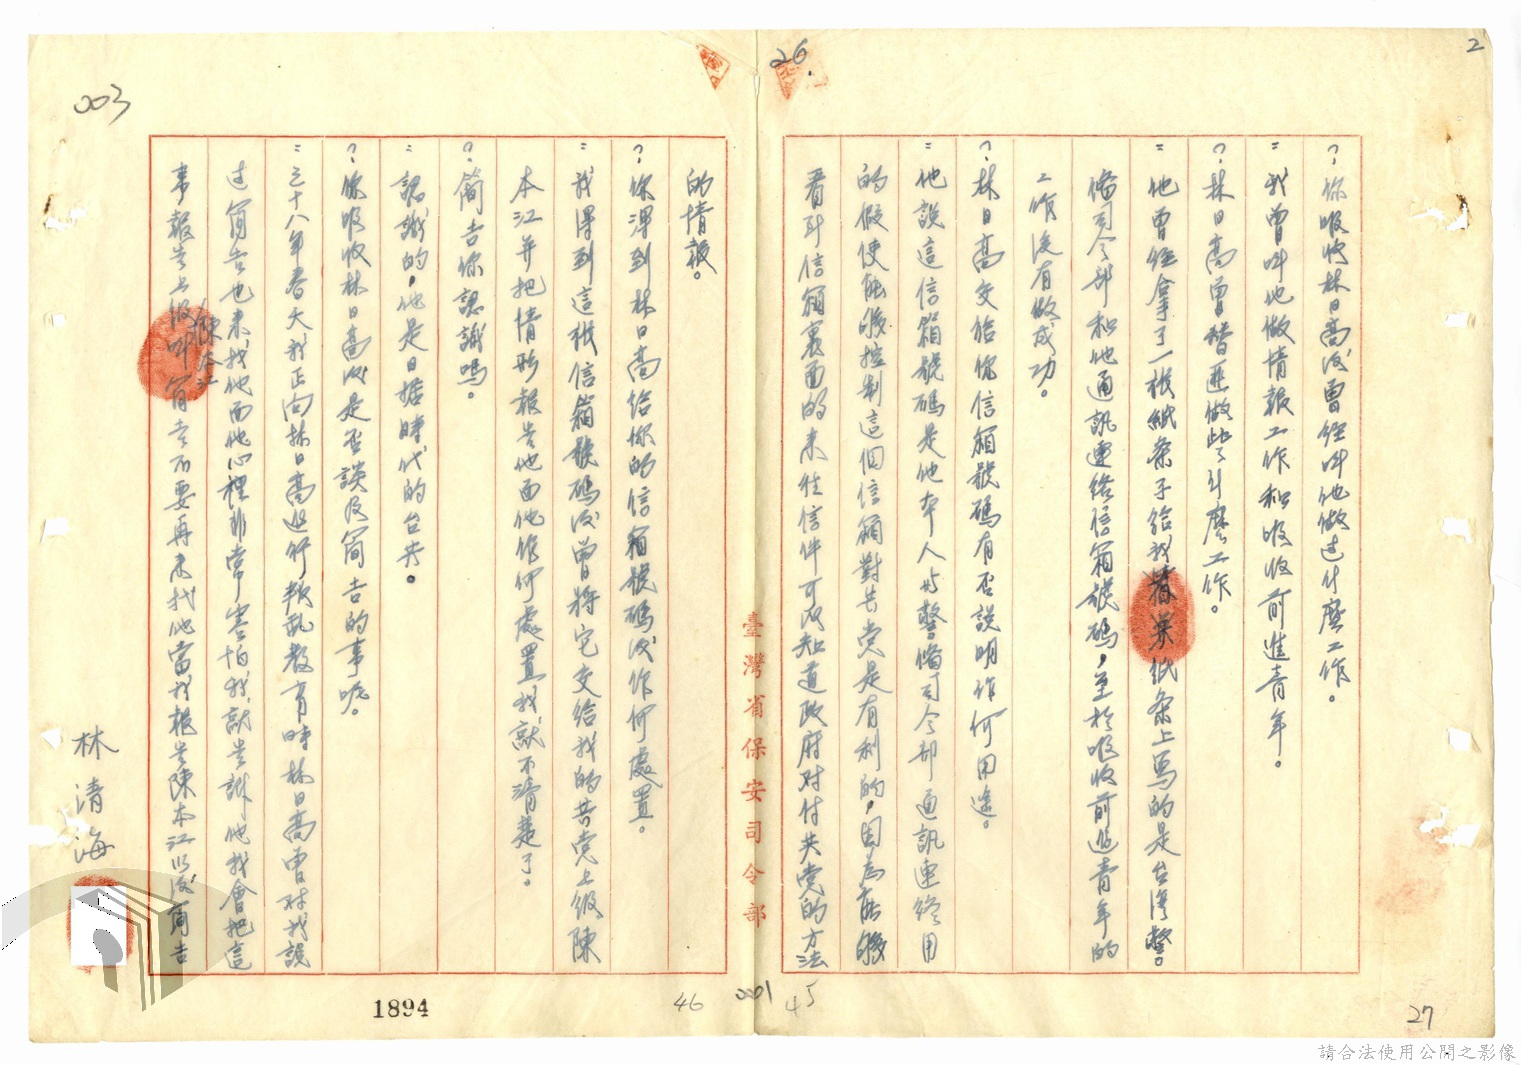 2
26.
003
？你吸收林日高後曾經叫他做過什麼工作。
＝我曾叫他做情報工作和吸收前進青年。
？林日高曾替匪做些了什麼工作。
＝他曾經拿了一張紙条子給我 紙条上寫的是台灣警
備司令部和他通訊連絡信箱號碼，至於吸收前進青年的
工作沒有做成功。
？林日高交給你信箱號碼有否說明作何用途。
＝他說這信箱號碼是他本人与警備司令部通訊連絡用
的假使能夠控制這個信箱對共党是有利的，因為能夠
看到信箱裏面的來往信件可以知道政府对付共党的方法
的情報。
？你得到林日高給你的信箱號碼後作何處置。
＝我得到這張信箱號碼後曾將它交給我的共党上級陳
本江并把情形報告他而他作何處置我就不清楚了。
？簡吉你認識嗎。
＝認識的，他是日据時代的台共。
？你吸收林日高後是否談及簡吉的事呢。
＝三十八年春天我正向林日高進行叛乱教育時林日高曾对我說
过簡吉也來找他而他心裡非常害怕我就告訴他我會把這
事報告上級陳本江叫簡吉不要再來找他當我報告陳本江以後簡吉
臺灣省保安司令部
林清海
1894
46
001
45
27
請合法使用公開之影像